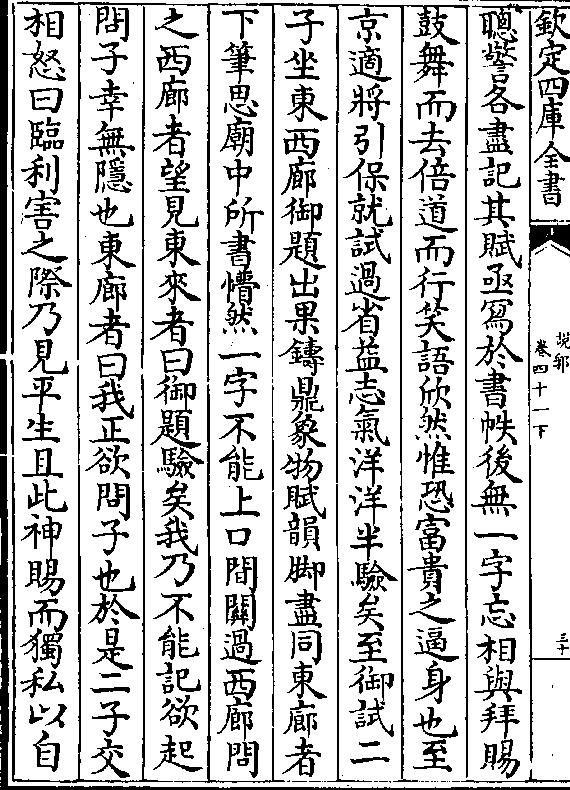 欽定四庫全書
說郛
卷四十一下
三十
聰警各盡記其賦亟寫於書帙後無一字忘相與拜賜
鼓舞而去倍道而行笑語欣然惟恐富貴之逼身也至
京適將引保就試過省益志氣洋洋半驗矣至御試二
子坐東西廊御題出果鑄鼎象物賦韻脚盡同東廊者
下筆思廟中所書懵然一字不能上口間關過西廊問
之西廊者望見東來者曰御題驗矣我乃不能記欲起
問子幸無隱也東廊者曰我正欲問子也於是二子交
相怒曰臨利害之際乃見平生且此神賜而獨私以自